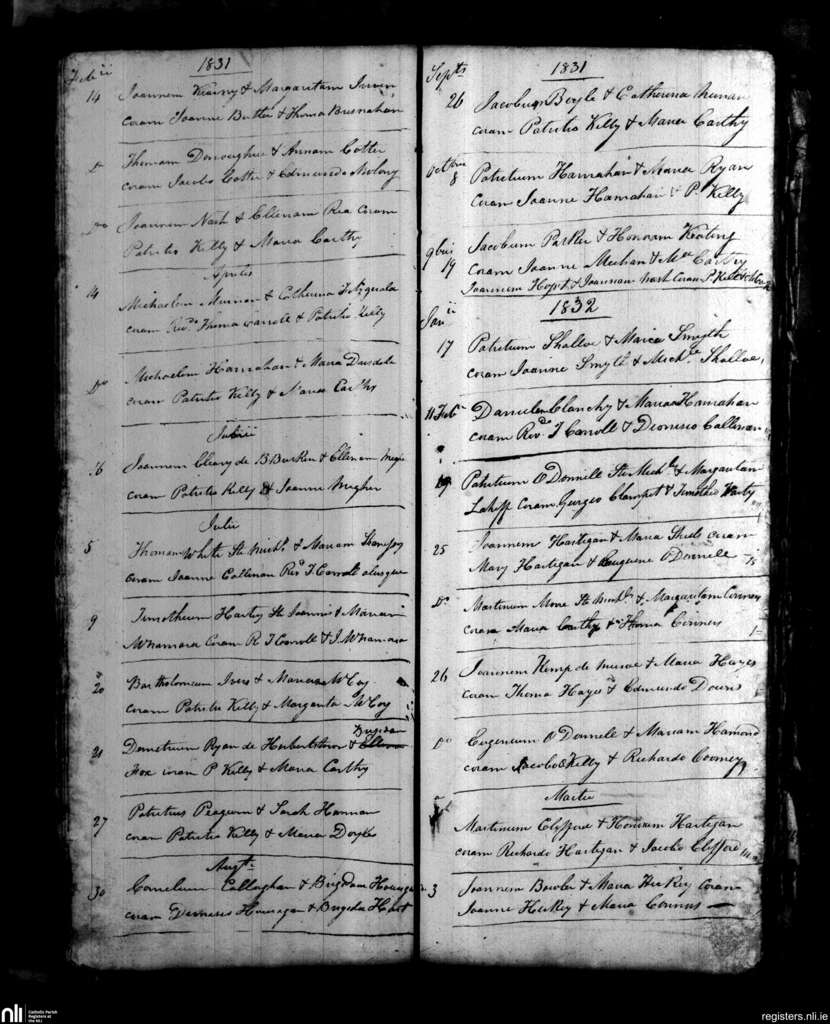 1831
Febii
14 Joannem Kearny & Margaritam
coram Joanne Butler & Thoma Bresnahan
Do Thomam Donoughue & Annam Cotter
coram Jacobo Cotter & Edmundo Molony
Do Joannem Nash & Ellenam Rea coram
Patritio Kelly & Maria Carthy
Aprilis
14 Michaelem & Catherina Fitzgerald
coram Revdo Thoma Carroll & Patritio Kelly
Do Michaelem Hanrahan & Maria
coram Patritio Kelly & Maria Carthy
Junii
16 Joannem Cleary de & Ellenam
coram Patritio Kelly & Joanne Megher
Julii
5 Thomam White St Michl & Mariam
coram Joanne Callinan Rev T Carroll aliisque
9 Timotheum Harty St Joannis & Mariam
McNamara Coram R T Carroll & J McNamara
20 Bartholomeum Ivers & Mariam McCoy
coram Patritio Kelly & Margarita McCoy
21 Demetrium Ryan de & Brigidam
Fox coram P Kelly & Maria Carthy
27 Patritius & Sarah Hannan
coram Patritio Kelly & Maria Doyle
Augti
30 Cornelium Callaghan & Brigidam
coram & Brigida
1831
Septs
26 Jacobum Boyle & Catherina
coram Patritio Kelly & Maria Carthy
Octbris
8 Patritium Hanrahan & Maria Ryan
Coram Joanne Hanrahan & P. Kelly
9bris
19 Jacobum Parker & Honoram Keating
coram Joanne Meehan & Mae Carthy
Joannem & Joannam Nash Coram P Kelly &
1832
Janii
17 Patritium Shalloe & Maria Smyth
coram Joanne Smyth & Michle Shalloe
11 Feb Danielem Clanchy & Mariam Hanrahan
coram Revdo T Carroll & Dionisio Callinan
19 Patritium O Donnele St Michls & Margaritam
Coram Georgio & Timotheo Harty
25 Joannem Hartigan & Maria Sheels coram
Mary Hartigan & Eugenio O Donnele
Do Martinum Mone St Michls & Margaritam Conners
coram Maria Carthy & Thoma Conners
26 Joannem Kemp de & Maria Hayes
coram Thoma Hayes & Edmundo Downs
Do Eugenium O Donnele & Mariam Hamond
coram Jacobo Kelly & Richardo Cooney
Martii
Martinum Clifford & Honoram Hartigan
coram Richardo Hartigan & Jacobo Clifford
3 Joannem Bowler & Maria Hickey Coram
Joanne Hickey & Maria Connors
nli
Catholic Parish
Registers at
the NLI
registers.nli.ie